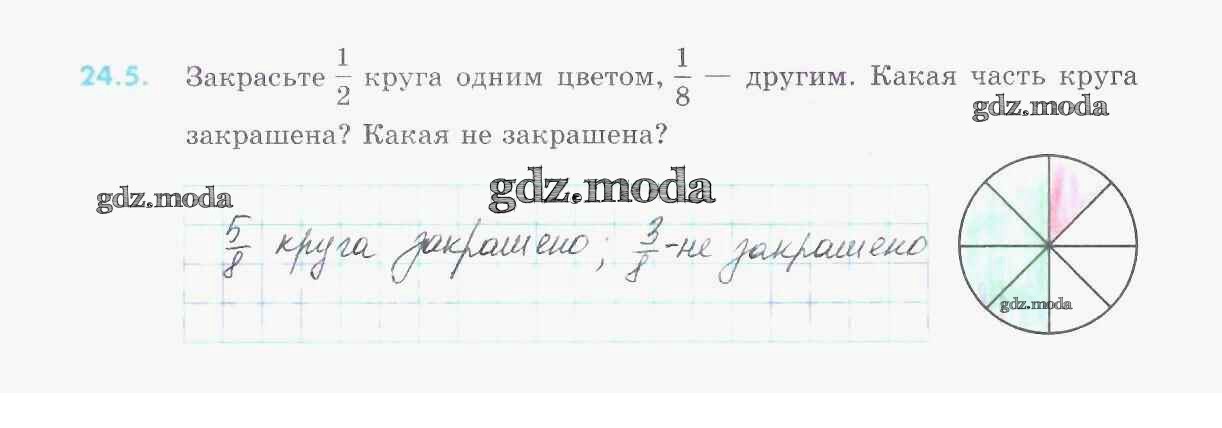 24.5. Закрасьте 1/2 круга одним цветом, 1/8 — другим. Какая часть круга
gdz.moda
закрашена? Какая не закрашена?
gdz.moda
gdz.moda
5/8 круга закрашено; 3/8 - не закрашено
gdz.moda